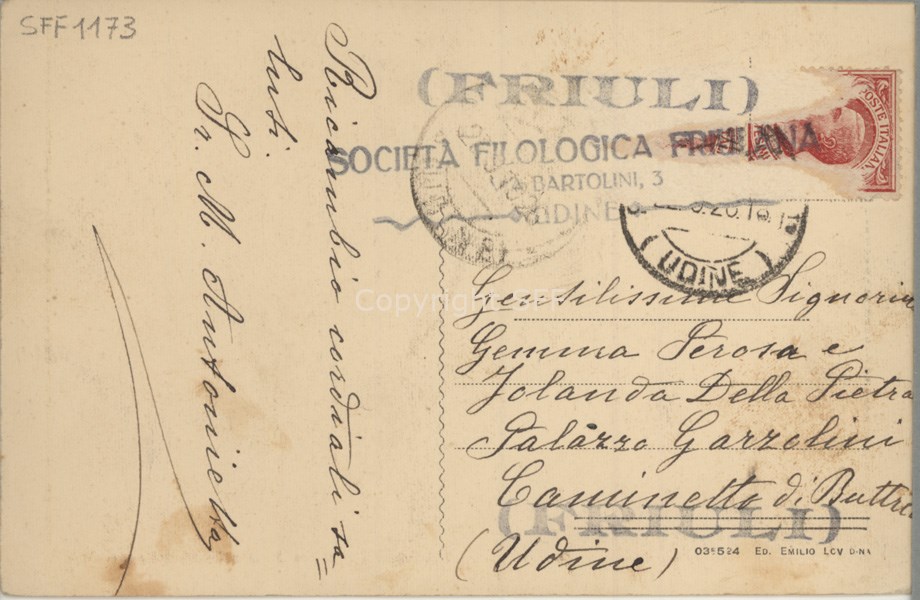 SFF1173
Ricambio cordiali sa=
luti.
Sr. M. Antonietta
(FRIULI)
SOCIETÀ FILOLOGICA FRIULANA
VIA BARTOLINI, 3
UDINE
POSTE ITALIANE
(UDINE)
Copyright SFF
Gentilissime Signorin
Gemma Perosa e
Jolanda Della Pietra
Palazzo Garzolini
Caminetto di Buttri
(FRIULI)
(Udine)
ED. EMILIO